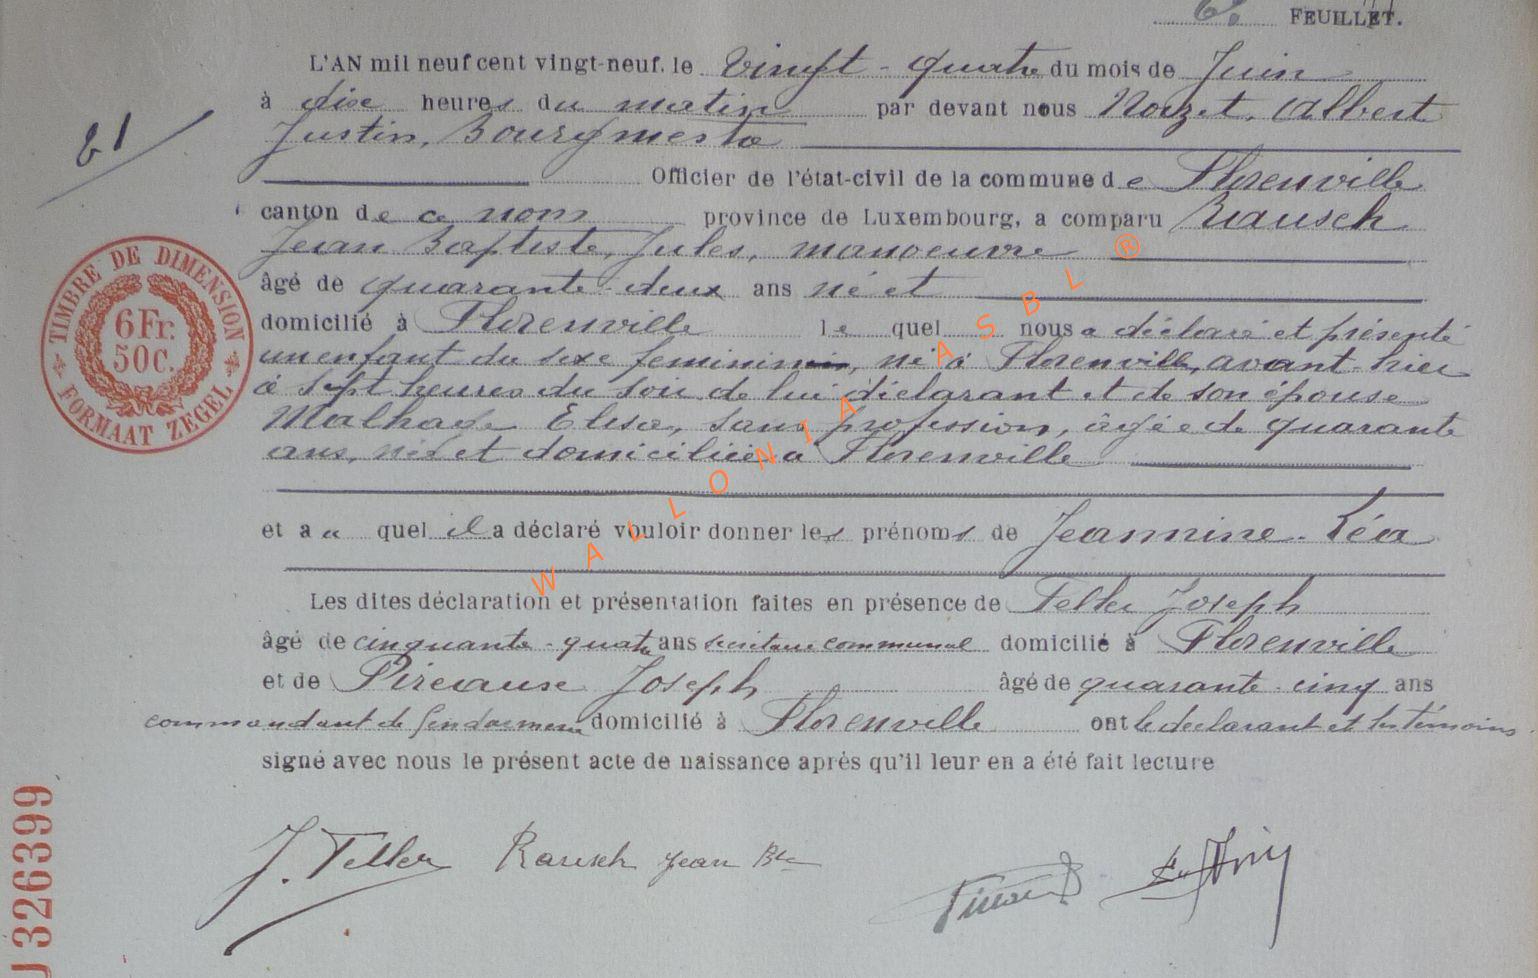 6. FEUILLET.
L'AN mil neuf cent vingt-neuf, le Vingt-quatre du mois de Juin
à dix heures du matin par devant nous Noizet, Albert
Justin, Bourgmestre
Officier de l'état-civil de la commune de Florenville
canton de ce nom province de Luxembourg, a comparu Rausch
Jean Baptiste, Jules, manoeuvre
âgé de quarante-deux ans né et
domicilié à Florenville lequel nous a déclaré et présenté
un enfant du sexe feminin, né à Florenville, avant-hier
à sept heures du soir de lui déclarant et de son épouse
Malhage Elisa, sans profession, âgée de quarante
ans, née et domiciliée à Florenville
et au quel il a déclaré vouloir donner les prénoms de Jeannine-Léa
Les dites déclaration et présentation faites en présence de Feller Joseph
âgé de cinquante-quatre ans secrétaire communal domicilié à Florenville
et de Joseph âgé de quarante-cinq ans
commandant de gendarmerie domicilié à Florenville ont le déclarant et les témoins
signé avec nous le présent acte de naissance après qu'il leur en a été fait lecture
J. Feller Rausch Jean Bte
81
TIMBRE DE DIMENSION
6 Fr.
50C.
FORMAAT ZEGEL
J 326399
WALLONIA ASBL ®